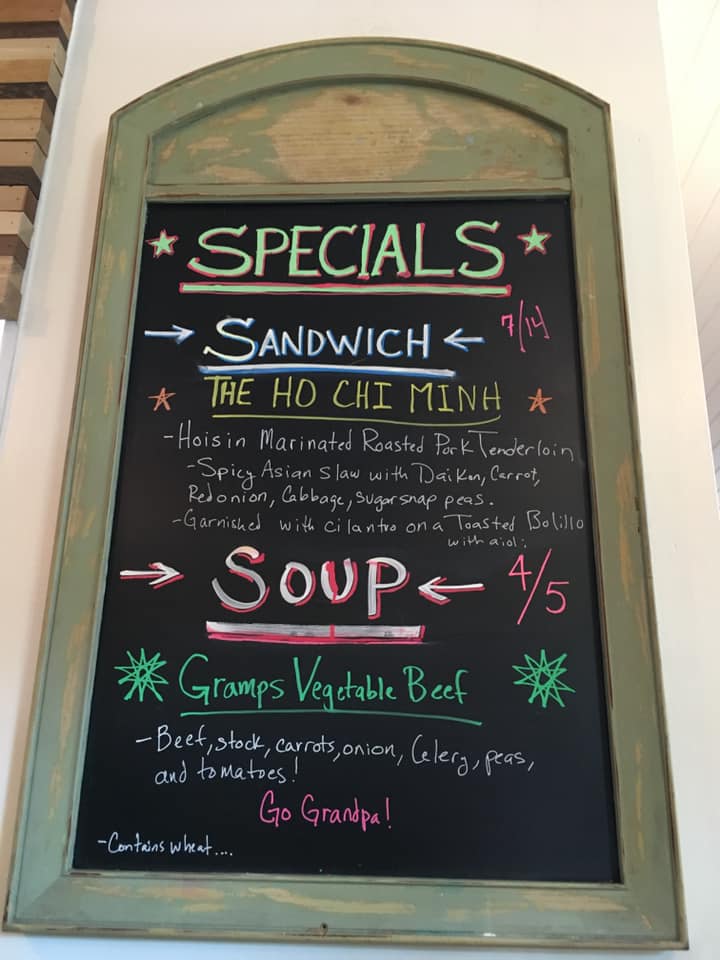 SPECIALS
SANDWICH 7/14
THE HO CHI MINH
-Hoisin Marinated Roasted Pork Tenderloin
-Spicy Asian slaw with Daikon, Carrot,
Red onion, Cabbage, sugar snap peas.
-Garnished with cilantro on a Toasted Bolillo
with aioli
SOUP 4/5
Gramps Vegetable Beef
-Beef, stock, carrots, onion, Celery, peas,
and tomatoes!
Go Grandpa!
-Contains wheat....